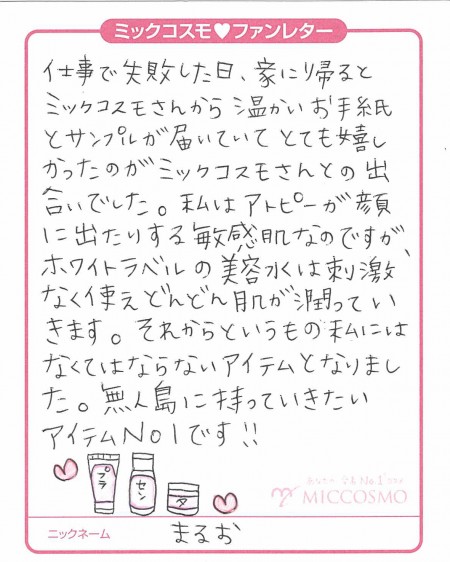 ミックコスモ♥ファンレター
仕事で失敗した日、家に帰ると
ミックコスモさんから温かいお手紙
とサンプルが届いていてとても嬉し
かったのがミックコスモさんとの出
合いでした。私はアトピーが顔
に出たりする敏感肌なのですが、
ホワイトラベルの美容水は刺激
なく使えどんどん肌が潤ってい
きます。それからというもの私には
なくてはならないアイテムとなりまし
た。無人島に持っていきたい
アイテムNo1です!!
プラ
セン
タ
MICCOSMO
ニックネーム
まるお